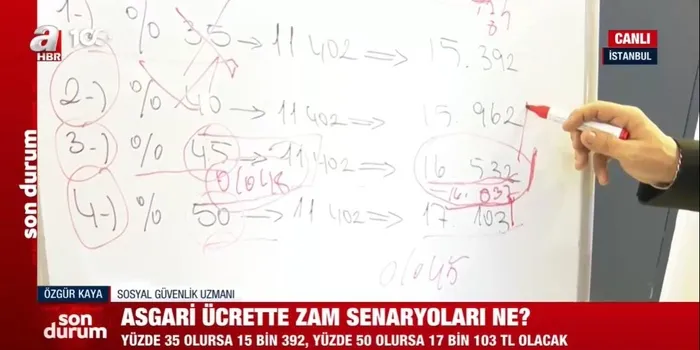 a
HBR
CANLI
İSTANBUL
1-) % 35 → 11 402 ⇒ 15.392
2-) % 40 → 11 402 ⇒ 15.962
3-) % 45 → 11 402 ⇒ 16 532
%48
4-) % 50 → 11 402 ⇒ 17.103
%45
son durum
ÖZGÜR KAYA
SOSYAL GÜVENLİK UZMANI
son durum
ASGARİ ÜCRETTE ZAM SENARYOLARI NE?
YÜZDE 35 OLURSA 15 BİN 392, YÜZDE 50 OLURSA 17 BİN 103 TL OLACAK